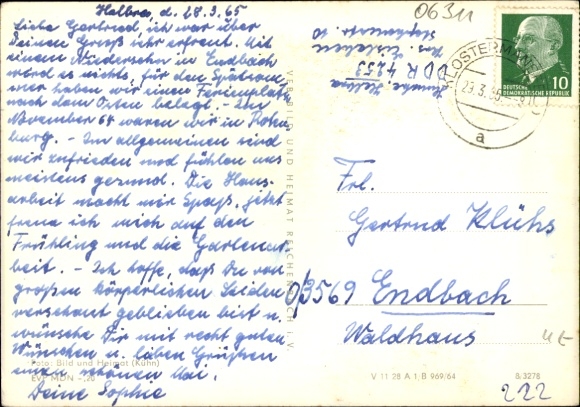 Helbra, d. 28.3.65
Liebe Gertrud, ich war über
Deinen Gruß sehr erfreut. Mit
einem Wiedersehn in Endbach
wird es nichts, für den Spätsom-
mer haben wir einen Ferienplatz
nach dem Osten belegt. - Im
November 64 waren wir in Roten-
burg. - Im allgemeinen sind
wir zufrieden und fühlen uns
meistens gesund. Die Haus-
arbeit macht mir Spaß, jetzt
freue ich mich auf den
Frühling und die Gartenar-
beit. - Ich hoffe, daß Du von
großen körperlichen Leiden
verschont geblieben bist u.
wünsche Dir mit recht guten
Wünschen u. lieben Grüßen
einen schönen Mai.
Deine Sophie
Foto: Bild und Heimat (Kühn)
EVP MDN -,20
VERLAG BILD UND HEIMAT REICHENBACH I. V.
DDR 4253
Helbra
0631
KLOSTERMANSFELD
29.3.65
a
DEUTSCHE
DEMOKRATISCHE REPUBLIK
10
Frl.
Gertrud Klühs
3569 Endbach
Waldhaus
V 11 28 A 1 B 969/64
8/3278
222